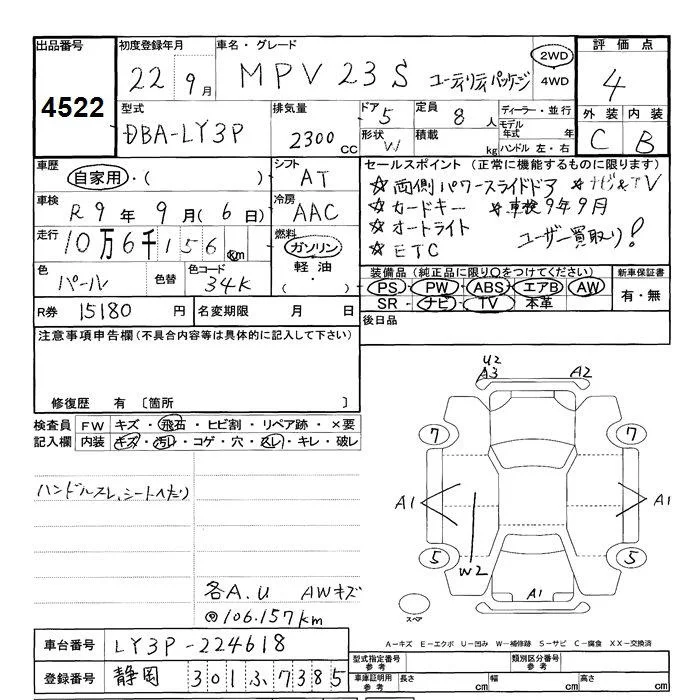 出品番号 初度登録年月 車名・グレード 評価点
4522 22 9月 MPV 23S ユーティリティパッケージ 2WD 4WD 4
型式 排気量 ドア 5 定員 8人 ディーラー・並行 外装 内装
DBA-LY3P 2300cc 形状 W 積載 kg モデル年式 年 ハンドル 左・右 C B
車歴 シフト セールスポイント(正常に機能するものに限ります)
自家用・( ) AT ☆両側パワースライドドア ☆ナビ&TV
車検 冷房 ☆カードキー ☆車検9年9月
R9年9月(6日) AAC ☆オートライト
走行 燃料 ☆ETC ユーザー買取り!
10万6千156km ガソリン
色 色替 色コード 軽油・( ) 装備品(純正品に限り○をつけてください) 新車保証書
パール 34K PS・PW・ABS・エアB・AW 有・無
SR・ナビ・TV・本革
R券 15180円 名変期限 月 日 後日品
注意事項申告欄(不具合内容等は具体的に記入して下さい)
修復歴 有〔箇所
検査員 FW キズ・飛石・ヒビ割・リペア跡・×要
記入欄 内装 キズ・汚れ・コゲ・穴・スレ・キレ・破レ
U2
A3 A2
7 7
ハンドルスレ、シートへたり
A1 A1
5 W2 5
各A.U AWキズ A1
@106.157km スペア
A-キズ E-エクボ U-凹み W-補修跡 S-サビ C-腐食 XX-交換済
車台番号 LY3P-224618
型式指定番号 参考 類別区分番号 参考
登録番号 静岡 301ふ7385
車庫証明用 参考 長さ cm 幅 cm 高さ cm